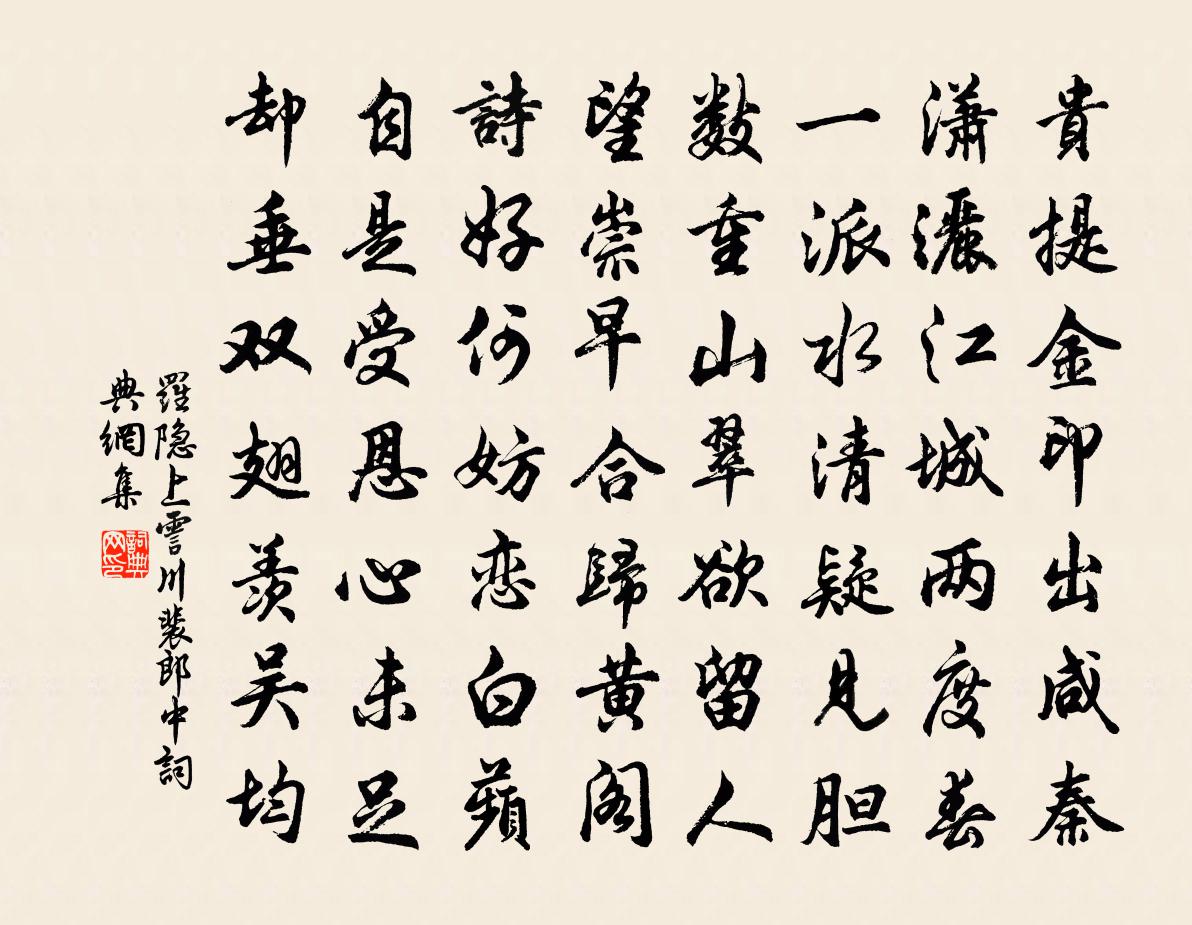 貴提金印出咸秦
潇灑江城两度春
一派水清疑見胆
数重山翠欲留人
望崇早合歸黄阁
詩好何妨恋白蘋
自是受恩心未足
却垂双翅羡吴均
羅隐上霅川裴郎中詞
典網集
詞典网印